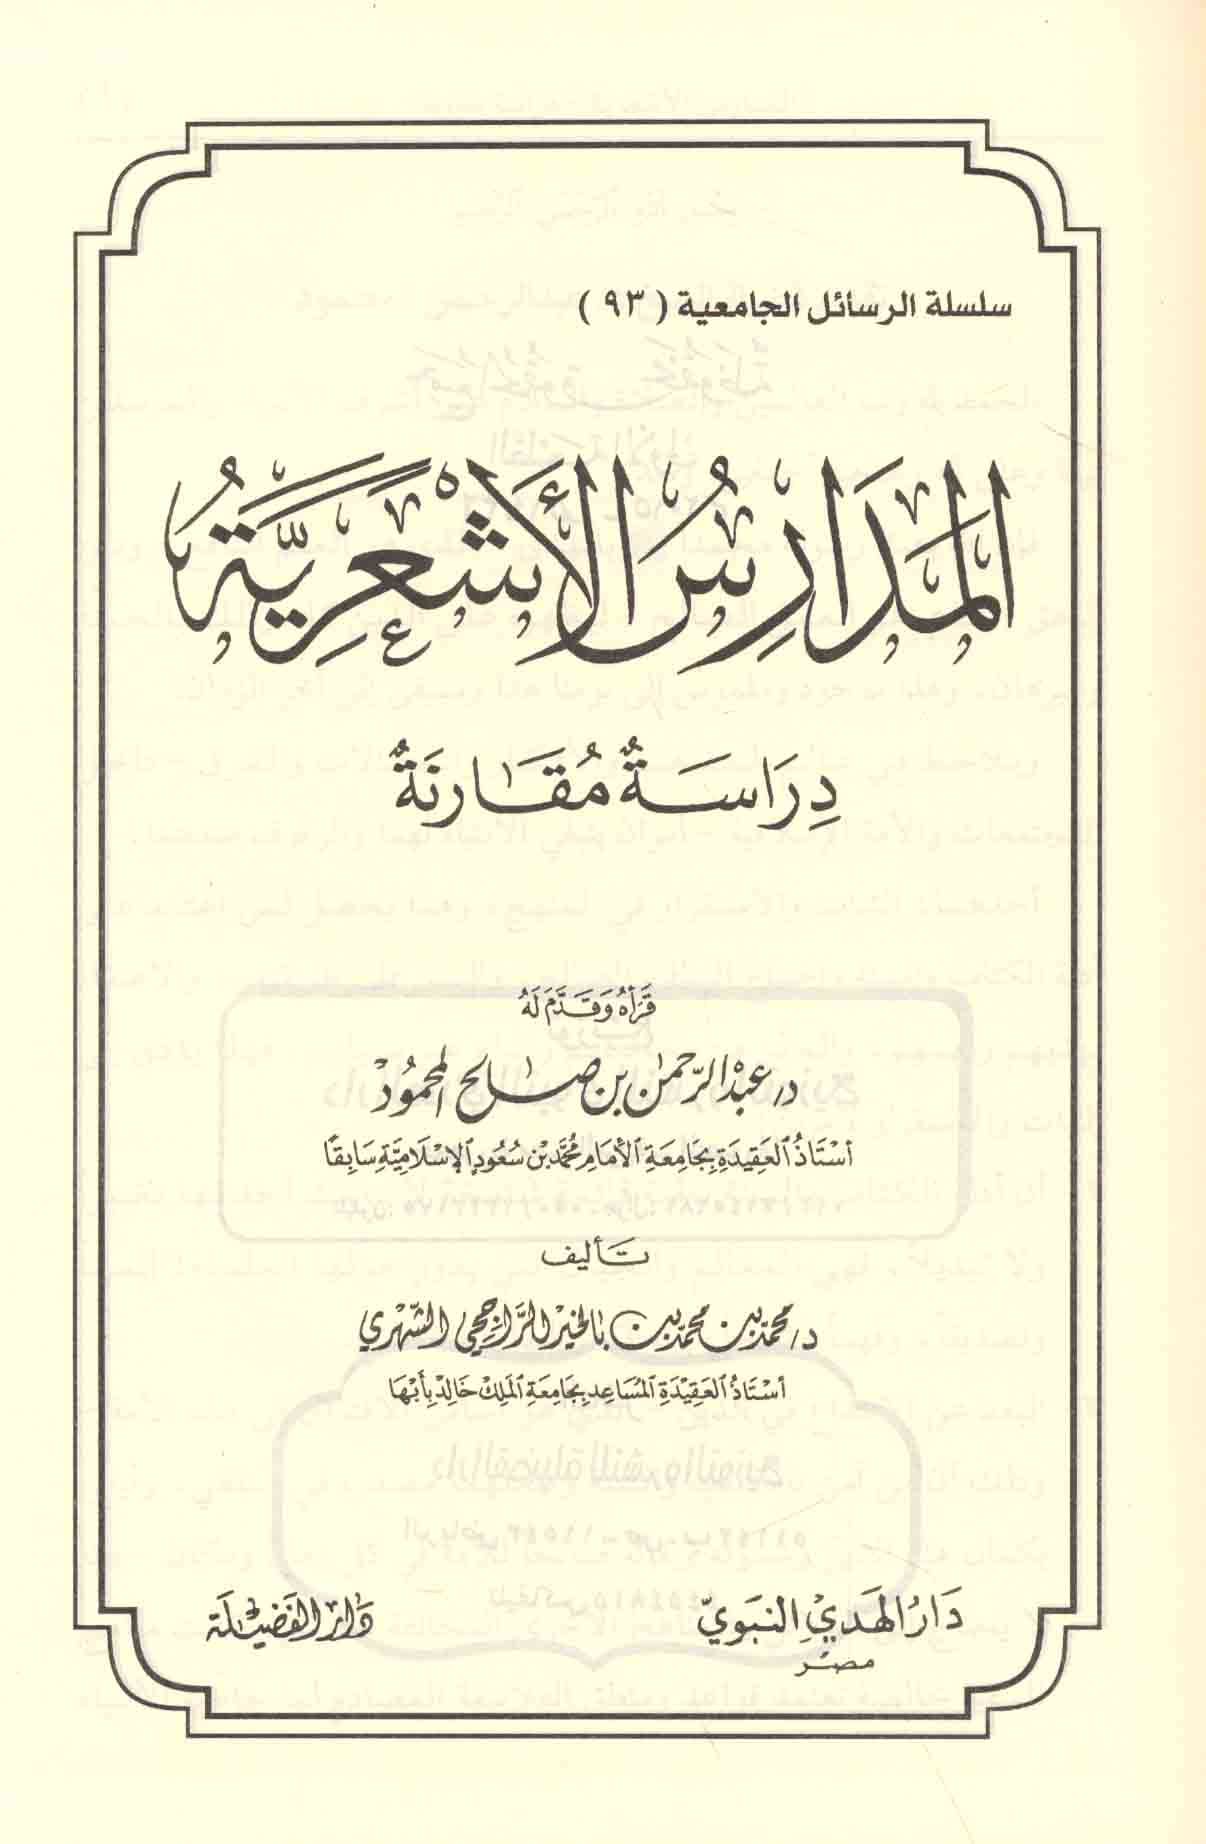 سلسلة الرسائل الجامعية (٩٣)
المَدَارِسُ الأَشْعَرِيَّةُ
دِرَاسَةٌ مُقَارنَةٌ
قَرَأهُ وَقَدَّمَ لَهُ
د/ عبْد الرّحمٰن بن صَالح المحمُودْ
أسْتَاذُ العَقِيدَةِ بجَامعَةِ الأمَامِ مُحمَّد بْن سُعُودٍ الإسْلَاميَّةِ سَابقًا
تأليف
د/ محمّد بن محمّد بن بالخير الرَّاجحيّ الشّهْري
أسْتَاذُ العَقِيْدَةِ المُسَاعِدِ بجَامعَةِ المَلِكْ خَالِدْ بِأبْهَا
دَارُ الهَدي النبَوي دَارُ الفَضيْلَة
مصر